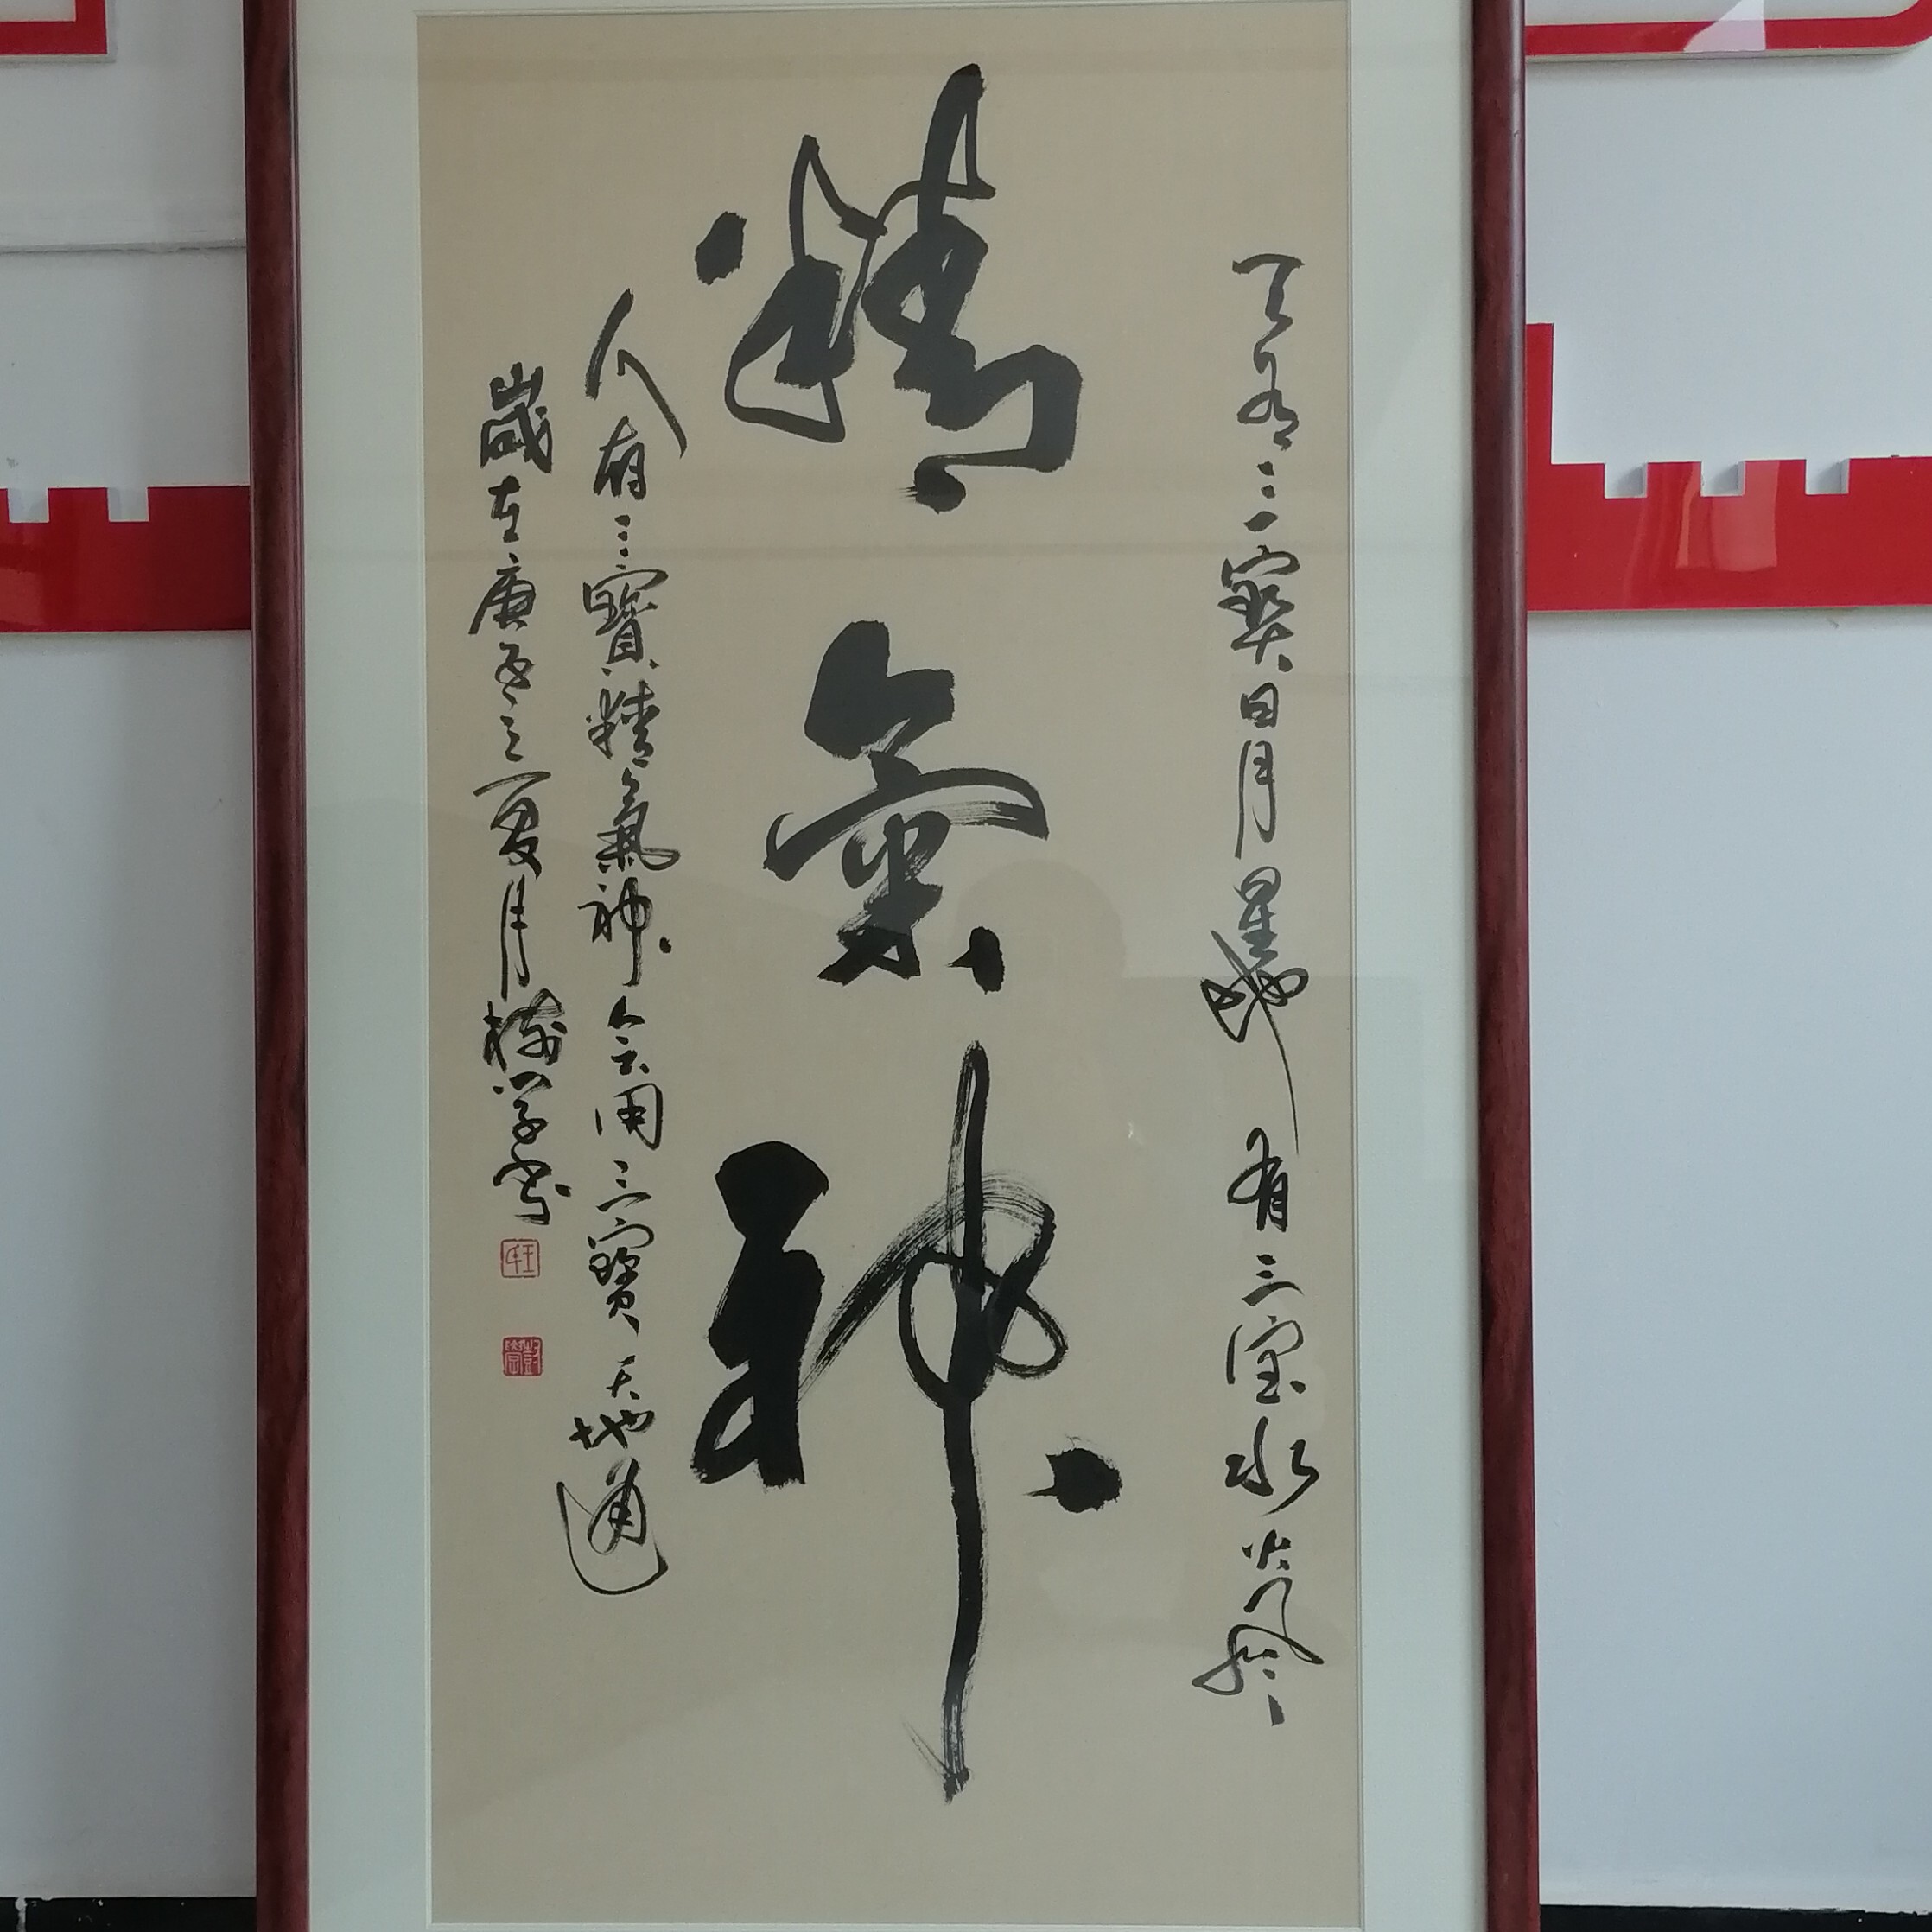 天有三寶日月星地有三宝水火風
精氣神
人有三寶精氣神会用三寶天地通
歲在庚之夏月樹学书